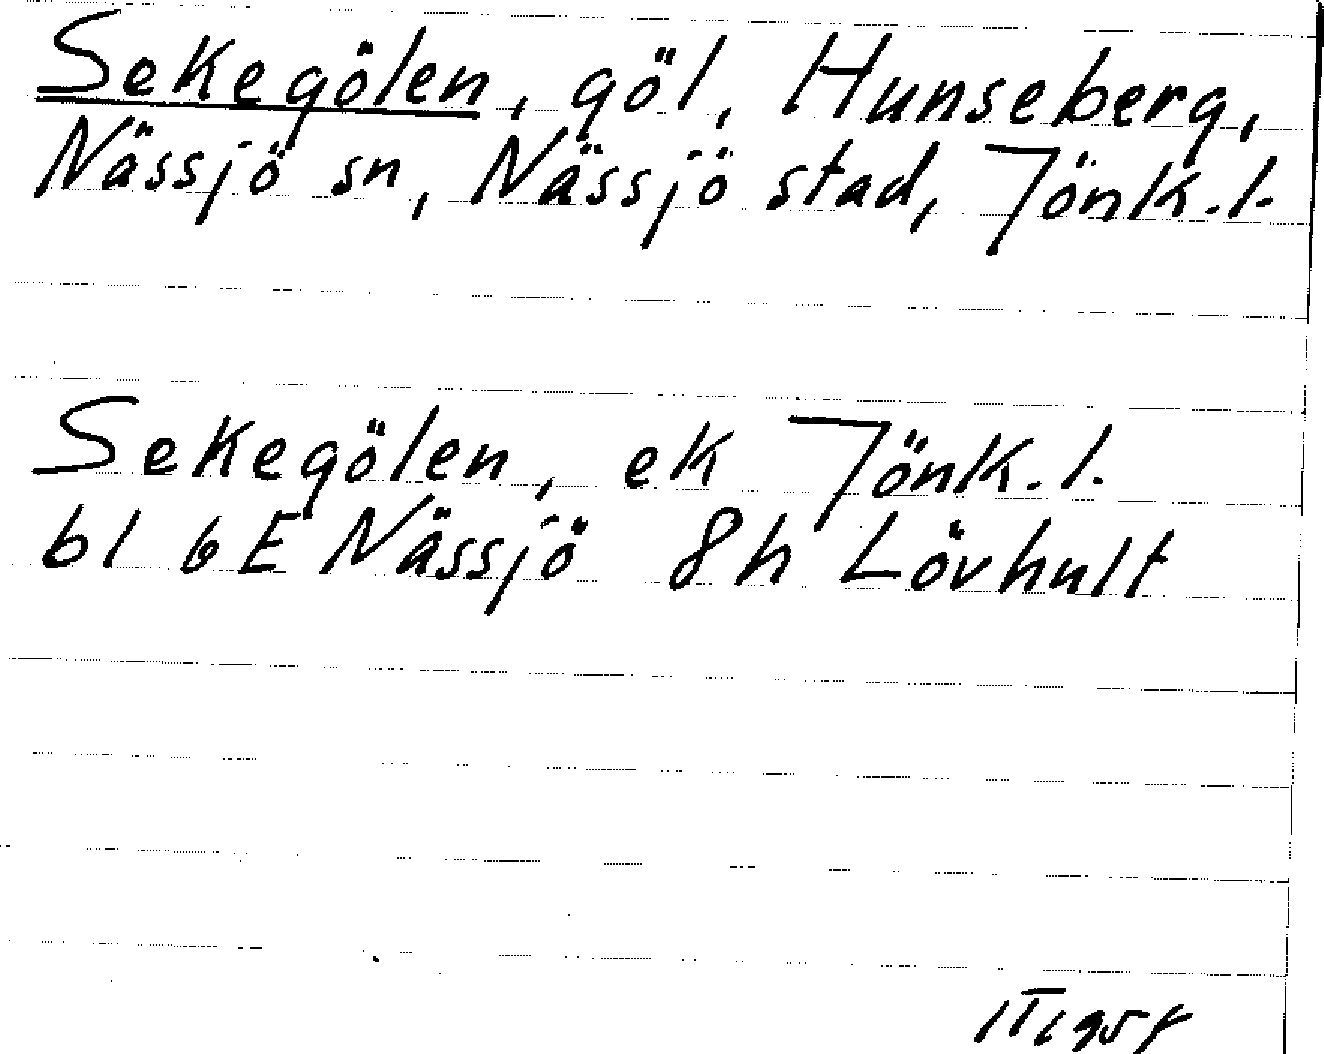 Sekegölen, göl, Hunseberg,
Nässjö sn, Nässjö stad, Jönk.l.
Sekegölen, ek Jönk.l.
bl 6E Nässjö 8h Lövhult